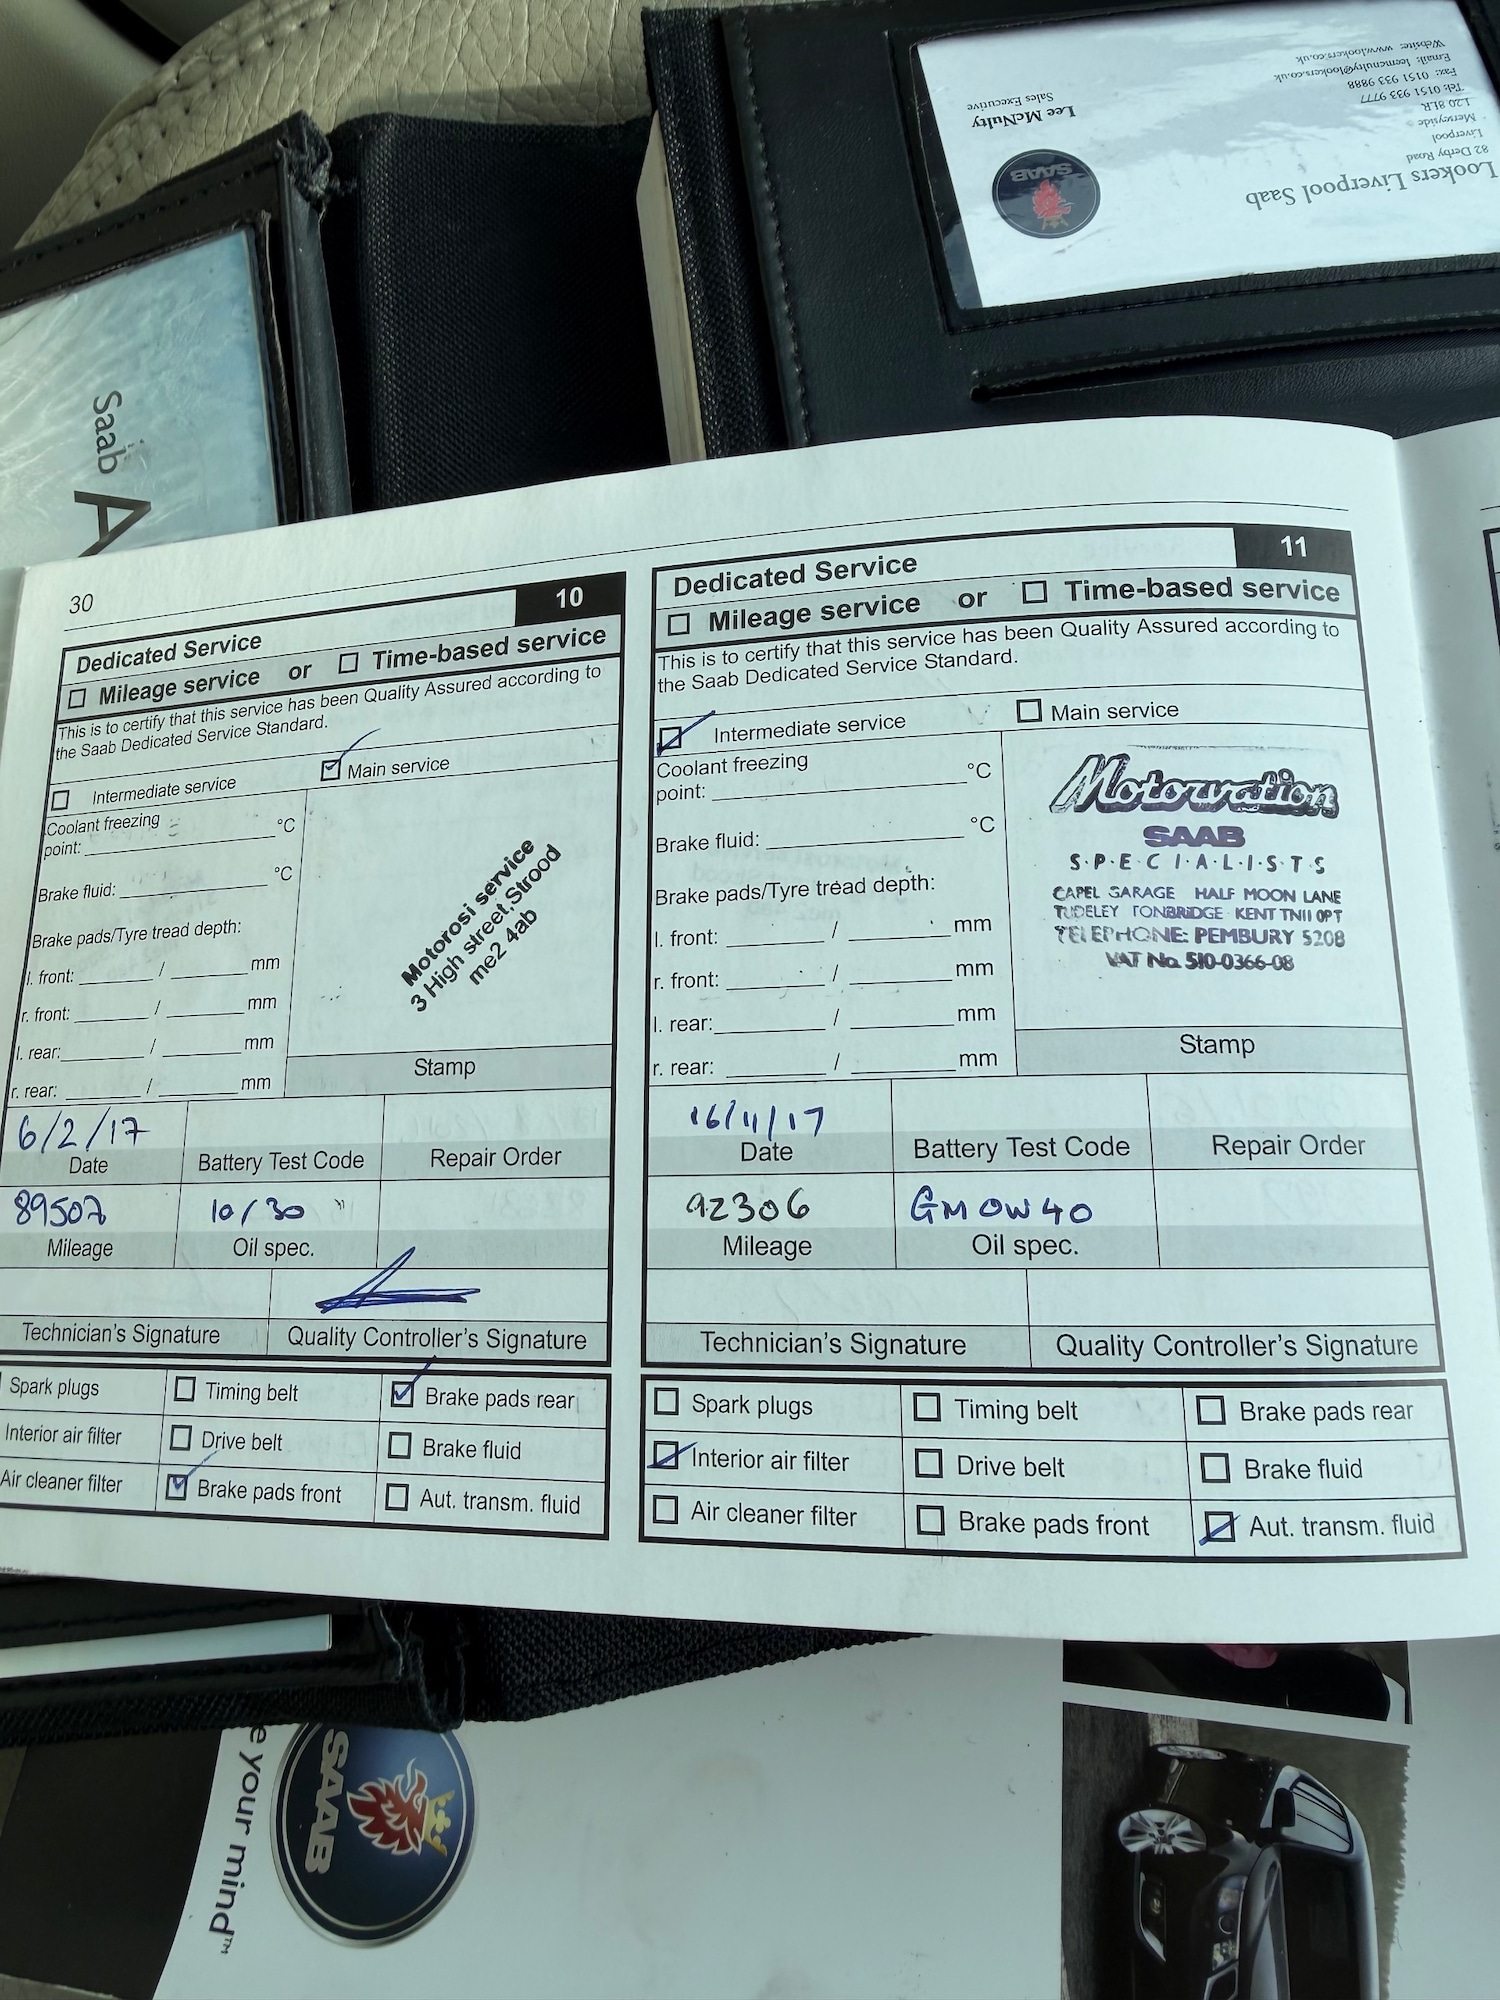 Lookers Liverpool Saab
82 Derby Road
Liverpool
Merseyside
L20 8LR
Tel: 0151 933 9777
Fax: 0151 933 9888
Email: leemcnulty@lookers.co.uk
Website: www.lookers.co.uk
Lee McNulty
Sales Executive
SAAB
Saab
A
30
10
Dedicated Service
Mileage service or Time-based service
This is to certify that this service has been Quality Assured according to
the Saab Dedicated Service Standard.
Intermediate service Main service
Coolant freezing
point: °C
Brake fluid: °C
Brake pads/Tyre tread depth:
l. front: / mm
r. front: / mm
l. rear: / mm
r. rear: / mm
Motorosi service
3 High street,Strood
me2 4ab
Stamp
6/2/17
Date Battery Test Code Repair Order
89507 10/30
Mileage Oil spec.
Technician's Signature Quality Controller's Signature
Spark plugs Timing belt Brake pads rear
Interior air filter Drive belt Brake fluid
Air cleaner filter Brake pads front Aut. transm. fluid
11
Dedicated Service
Mileage service or Time-based service
This is to certify that this service has been Quality Assured according to
the Saab Dedicated Service Standard.
Intermediate service Main service
Coolant freezing
point: °C
Brake fluid: °C
Brake pads/Tyre tread depth:
l. front: / mm
r. front: / mm
l. rear: / mm
r. rear: / mm
Motorvation
SAAB
S·P·E·C·I·A·L·I·S·T·S
CAPEL GARAGE HALF MOON LANE
TUDELEY TONBRIDGE KENT TN11 0PT
TELEPHONE: PEMBURY 5208
VAT No. 510-0366-08
Stamp
16/11/17
Date Battery Test Code Repair Order
92306 GM OW40
Mileage Oil spec.
Technician's Signature Quality Controller's Signature
Spark plugs Timing belt Brake pads rear
Interior air filter Drive belt Brake fluid
Air cleaner filter Brake pads front Aut. transm. fluid
e your mind™
SAAB